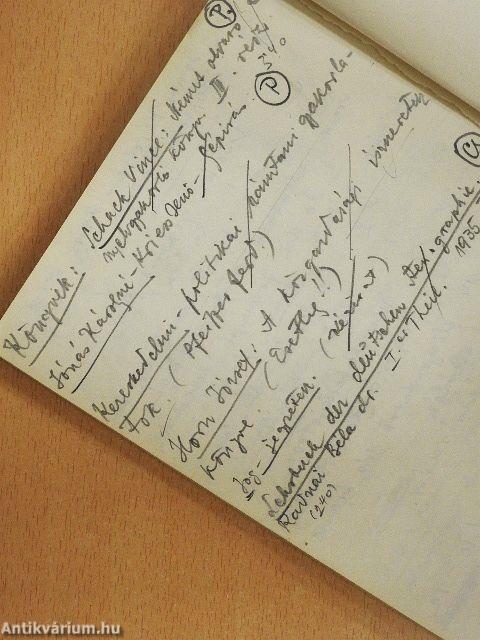 Könyvek: Schack Vince: Német olvasó és
nyelvgyakorló könyv. III. rész. P.
Jónás Károlyné - Kriesz Jenő - Gépírás P 340
Kereskedelmi - politikai számtani gyakorla-
tok. (Pfeifer Ferd.)
Horn József: A közgazdasági ismeretek
könyve. (Esetleg!!)
Jog - jegyzetek.
Lehrbuch der deutschen Stenographie.
Radnai Béla dr. I-er Theil. 1935
(240)
Antikvárium.hu